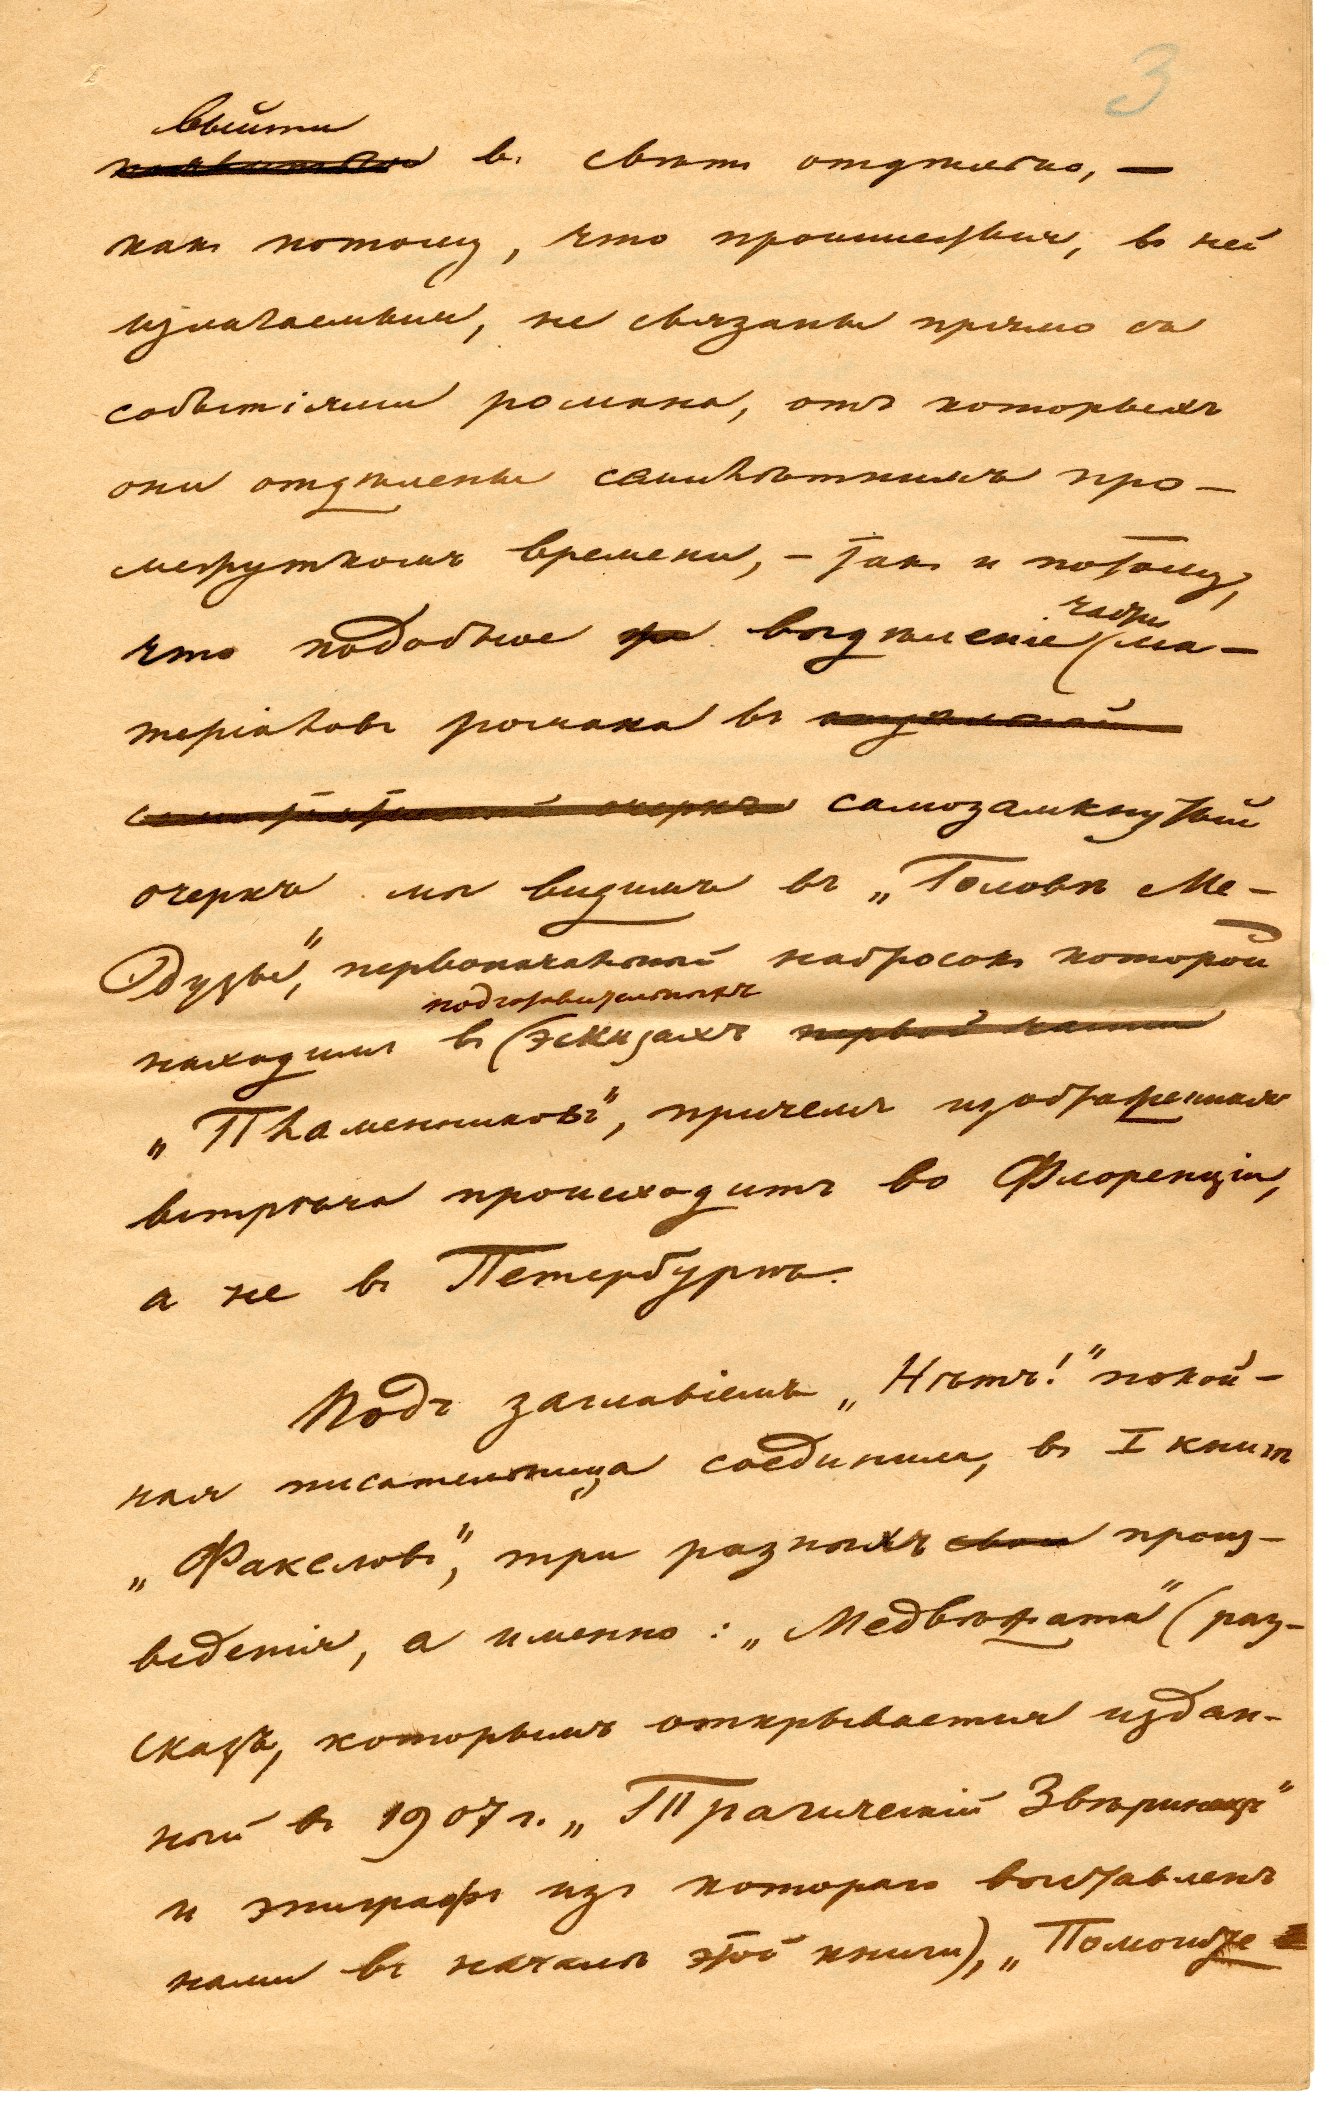 3
выйти
появиться въ свѣтъ отдѣльно, —
какъ потому, что происшествія, въ ней
излагаемыя, не связаны прямо съ
событіями романа, отъ которыхъ
они отдѣлены семилѣтнимъ про-
межуткомъ времени, – такъ и потому,
части
что подобное выдѣленіе ма-
теріаловъ романа въ отдѣльный
очеркъ самозамкнутый
очеркъ мы видимъ въ „Головѣ Ме-
дузы", первоначальный набросокъ которой
подготовительныхъ
находимъ въ эскизахъ первой части
„Пламенниковъ", причемъ изображенная
встрѣча происходитъ во Флоренціи,
а не въ Петербургѣ.
Подъ заглавіемъ „Нѣтъ!" покой-
ная писательница соединила, въ I книгѣ
„Факеловъ", три разныхъ свои произ-
веденія, а именно: „Медвѣжата" (раз-
сказъ, которымъ открывается издан-
ный въ 1907 г. „Трагическій Звѣринецъ"
и эпиграфъ изъ котораго выставленъ
нами въ началѣ этой книги), „Помогите